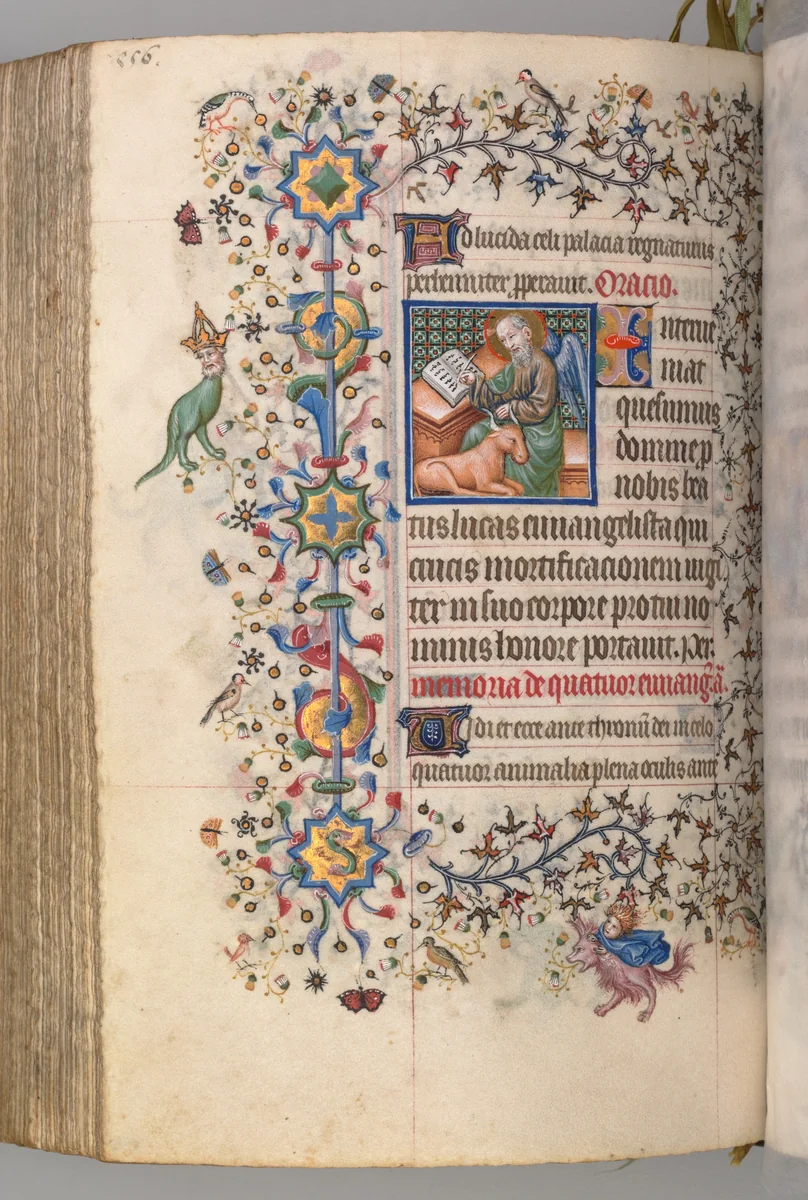 556.
Ad lucida celi palacia regnaturus
perhenniter properavit. Oracio.
Interve
niat
quesumus
domine p
nobis bea
tus lucas euuangelista qui
crucis mortificacionem iugi
ter in suo corpore pro tui no
minis honore portauit. Per.
memoria de quatuor euuang.
Vidi et ecce ante thronū dei in celo
quatuor animalia plena oculis ante